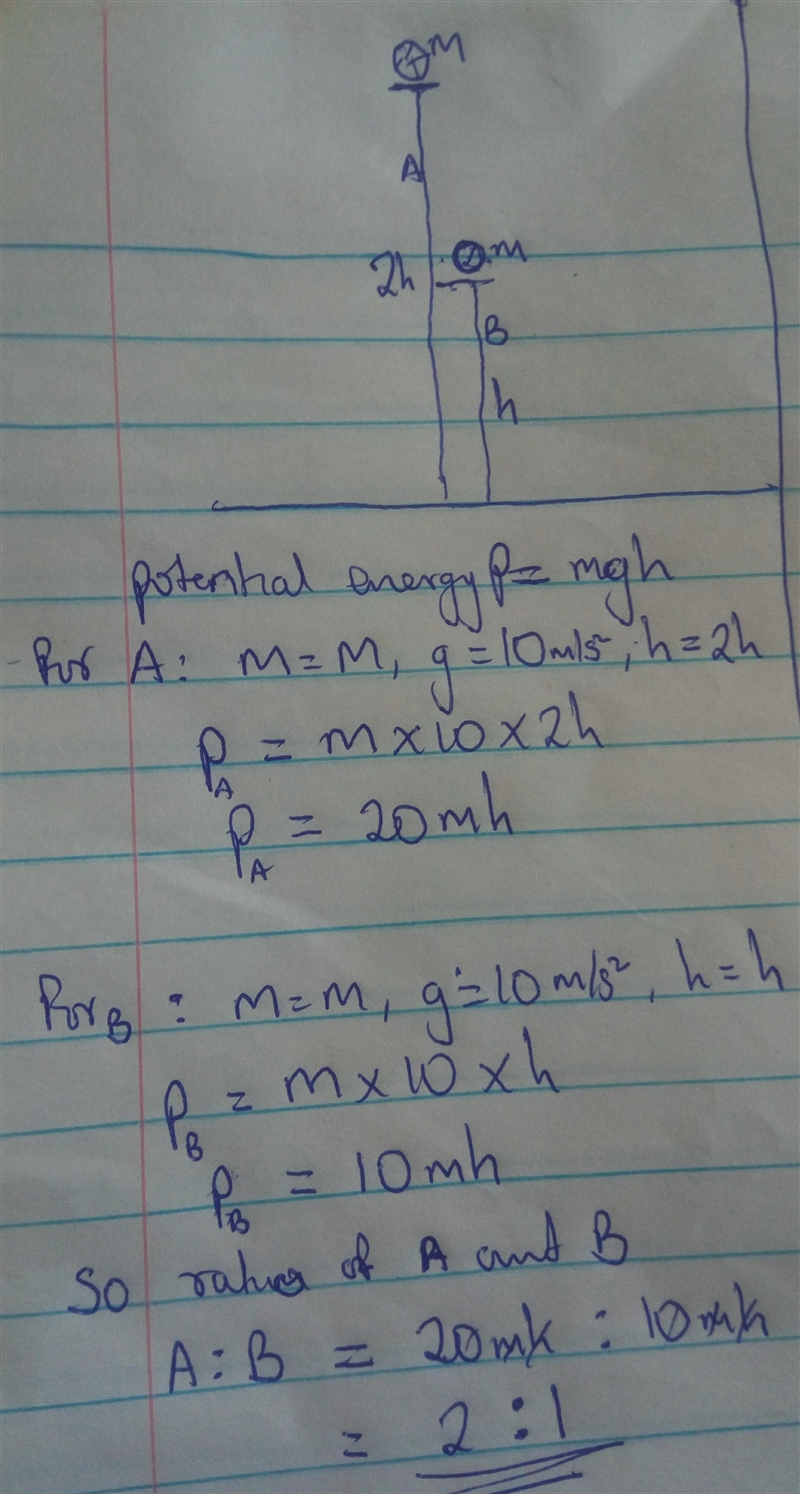 M
A
2h
M
B
h
potential energy P = mgh
For A: m = M, g = 10 m/s², h = 2h
P_A = m × 10 × 2h
P_A = 20mh
For B : m = m, g = 10 m/s², h = h
P_B = m × 10 × h
P_B = 10mh
So of A and B
A : B = 20mh : 10mh
= 2 : 1